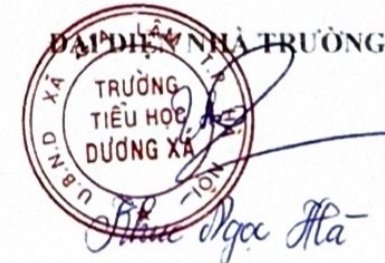 ĐẠI DIỆN NHÀ TRƯỜNG
U.B.N.D XÃ GIA LÂM T.P HÀ NỘI
TRƯỜNG
TIỂU HỌC
DƯƠNG XÁ
Ngọc Hà